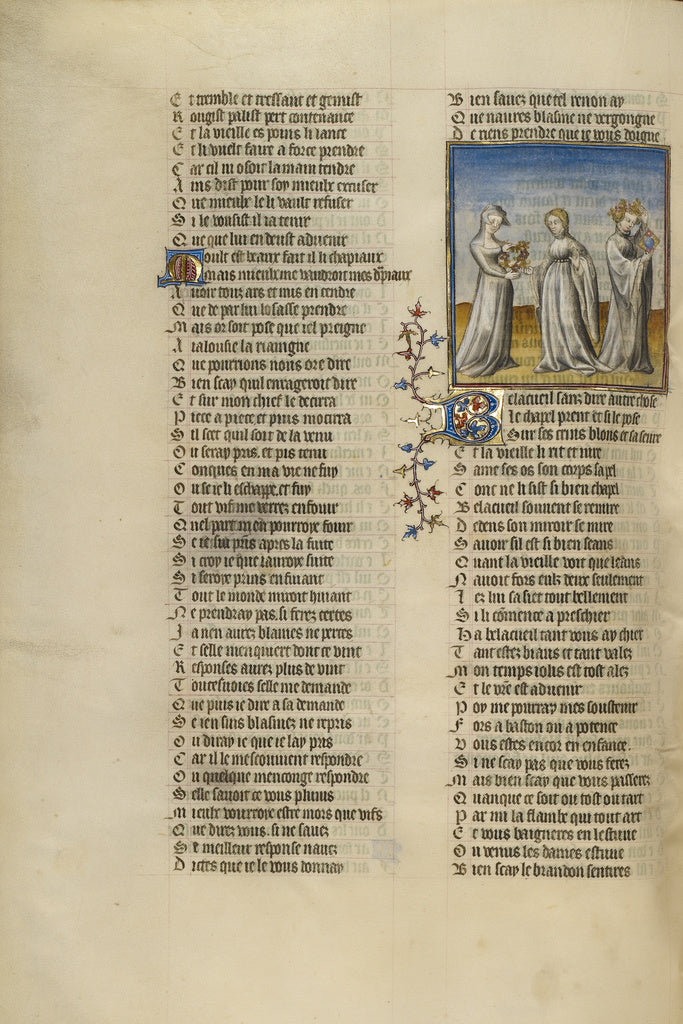 Et tremble et tressaut et gemist
Rougist palist pert contenance
Et la vieille es poins li lance
Et li vuelt faire a force prendre
Car cil ni osoit la main tendre
Ains dist pour soy mieulx excuser
Que mieulx le li vault refuser
Si le vousist il ia tenir
Que que lui en deust aduenir
Moult est beaux fait il li chapiaux
mais mieulx me vaudroit mes drapiaux
Auoir touz ars et mis en cendre
Que de par lui losasse prendre
Mais or soit pose que iel preigne
A ialousie la riaingne
Que pourrions nous ore dire
Bien scay quil enrageroit dire
Et sur mon chief le decirra
Piece a piece et puis mocirra
Sil scet quil soit de la venu
Ou seray pris et pis tenu
Conques en ma vie ne fuy
Ou se ie li eschappe et fuy
Tout vif me verrez enfouir
Quel part men pourroye fouir
Se ie sui pris apres la fuite
Si croy ie que iauroye suite
Si seroye prins en fuiant
Tout le monde miroit huiant
Ne prendray pas si ferez certes
Ja nen aurez blasmes ne pertes
Et selle menquiert dont ce vint
Responses aurez plus de vint
Toutesuoies selle me demande
Que puis ie dire a sa demande
Se ien suis blasmez ne repris
Ou diray ie que ie lay pris
Car il le mesconuient respondre
Ou quelque menconge respondre
Selle sauoit ce vous pluuis
Mieulx vourroye estre mors que vifs
Que direz vous si ne sauez
Se meilleur response nauez
Dictes que ie le vous donnay
Bien sauez que tel renon ay
Que naures blasme ne vergongne
De riens prendre que ie vous doigne
Belacueil sanz dire autre chose
le chapel prent et si le pose
Sur ses crins blons et sasseure
Et la vieille li rit et iure
Same ses os son corps sa pel
Conc ne li sist si bien chapel
Belacueil souuent se remire
Dedens son miroir se mire
Sauoir sil est si bien seans
Quant la vieille voit que leans
Nauoit fors eulx deux seulement
Lez lui sassiet tout bellement
Si li commence a preschier
Ha belacueil tant vous ay chier
Tant estes biaus et tant valez
Mon temps iolis est tost alez
Et le vostre est aduenir
Poy me pourray mes soustenir
Fors a baston ou a potence
Vous estes encor en enfance
Si ne scay pas que vous ferez
Mais bien scay que vous passerez
Quanque ce soit ou tost ou tart
Par mi la flambe qui tout art
Et vous baigneres en lestuue
Ou venus les dames estuue
Bien scay le brandon sentires